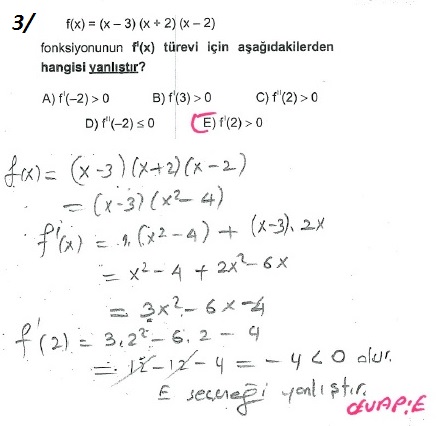 3/ f(x) = (x – 3) (x + 2) (x – 2)
fonksiyonunun f'(x) türevi için aşağıdakilerden
hangisi yanlıştır?
A) f'(–2) > 0 B) f'(3) > 0 C) f''(2) > 0
D) f''(–2) ≤ 0 E) f'(2) > 0
f(x) = (x-3)(x+2)(x-2)
= (x-3)(x²-4)
f'(x) = 1.(x²-4) + (x-3).2x
= x²-4 + 2x²-6x
= 3x²-6x-4
f'(2) = 3.2²-6.2-4
= 12-12-4 = -4 < 0 olur.
E seçeneği yanlıştır.
CEVAP:E